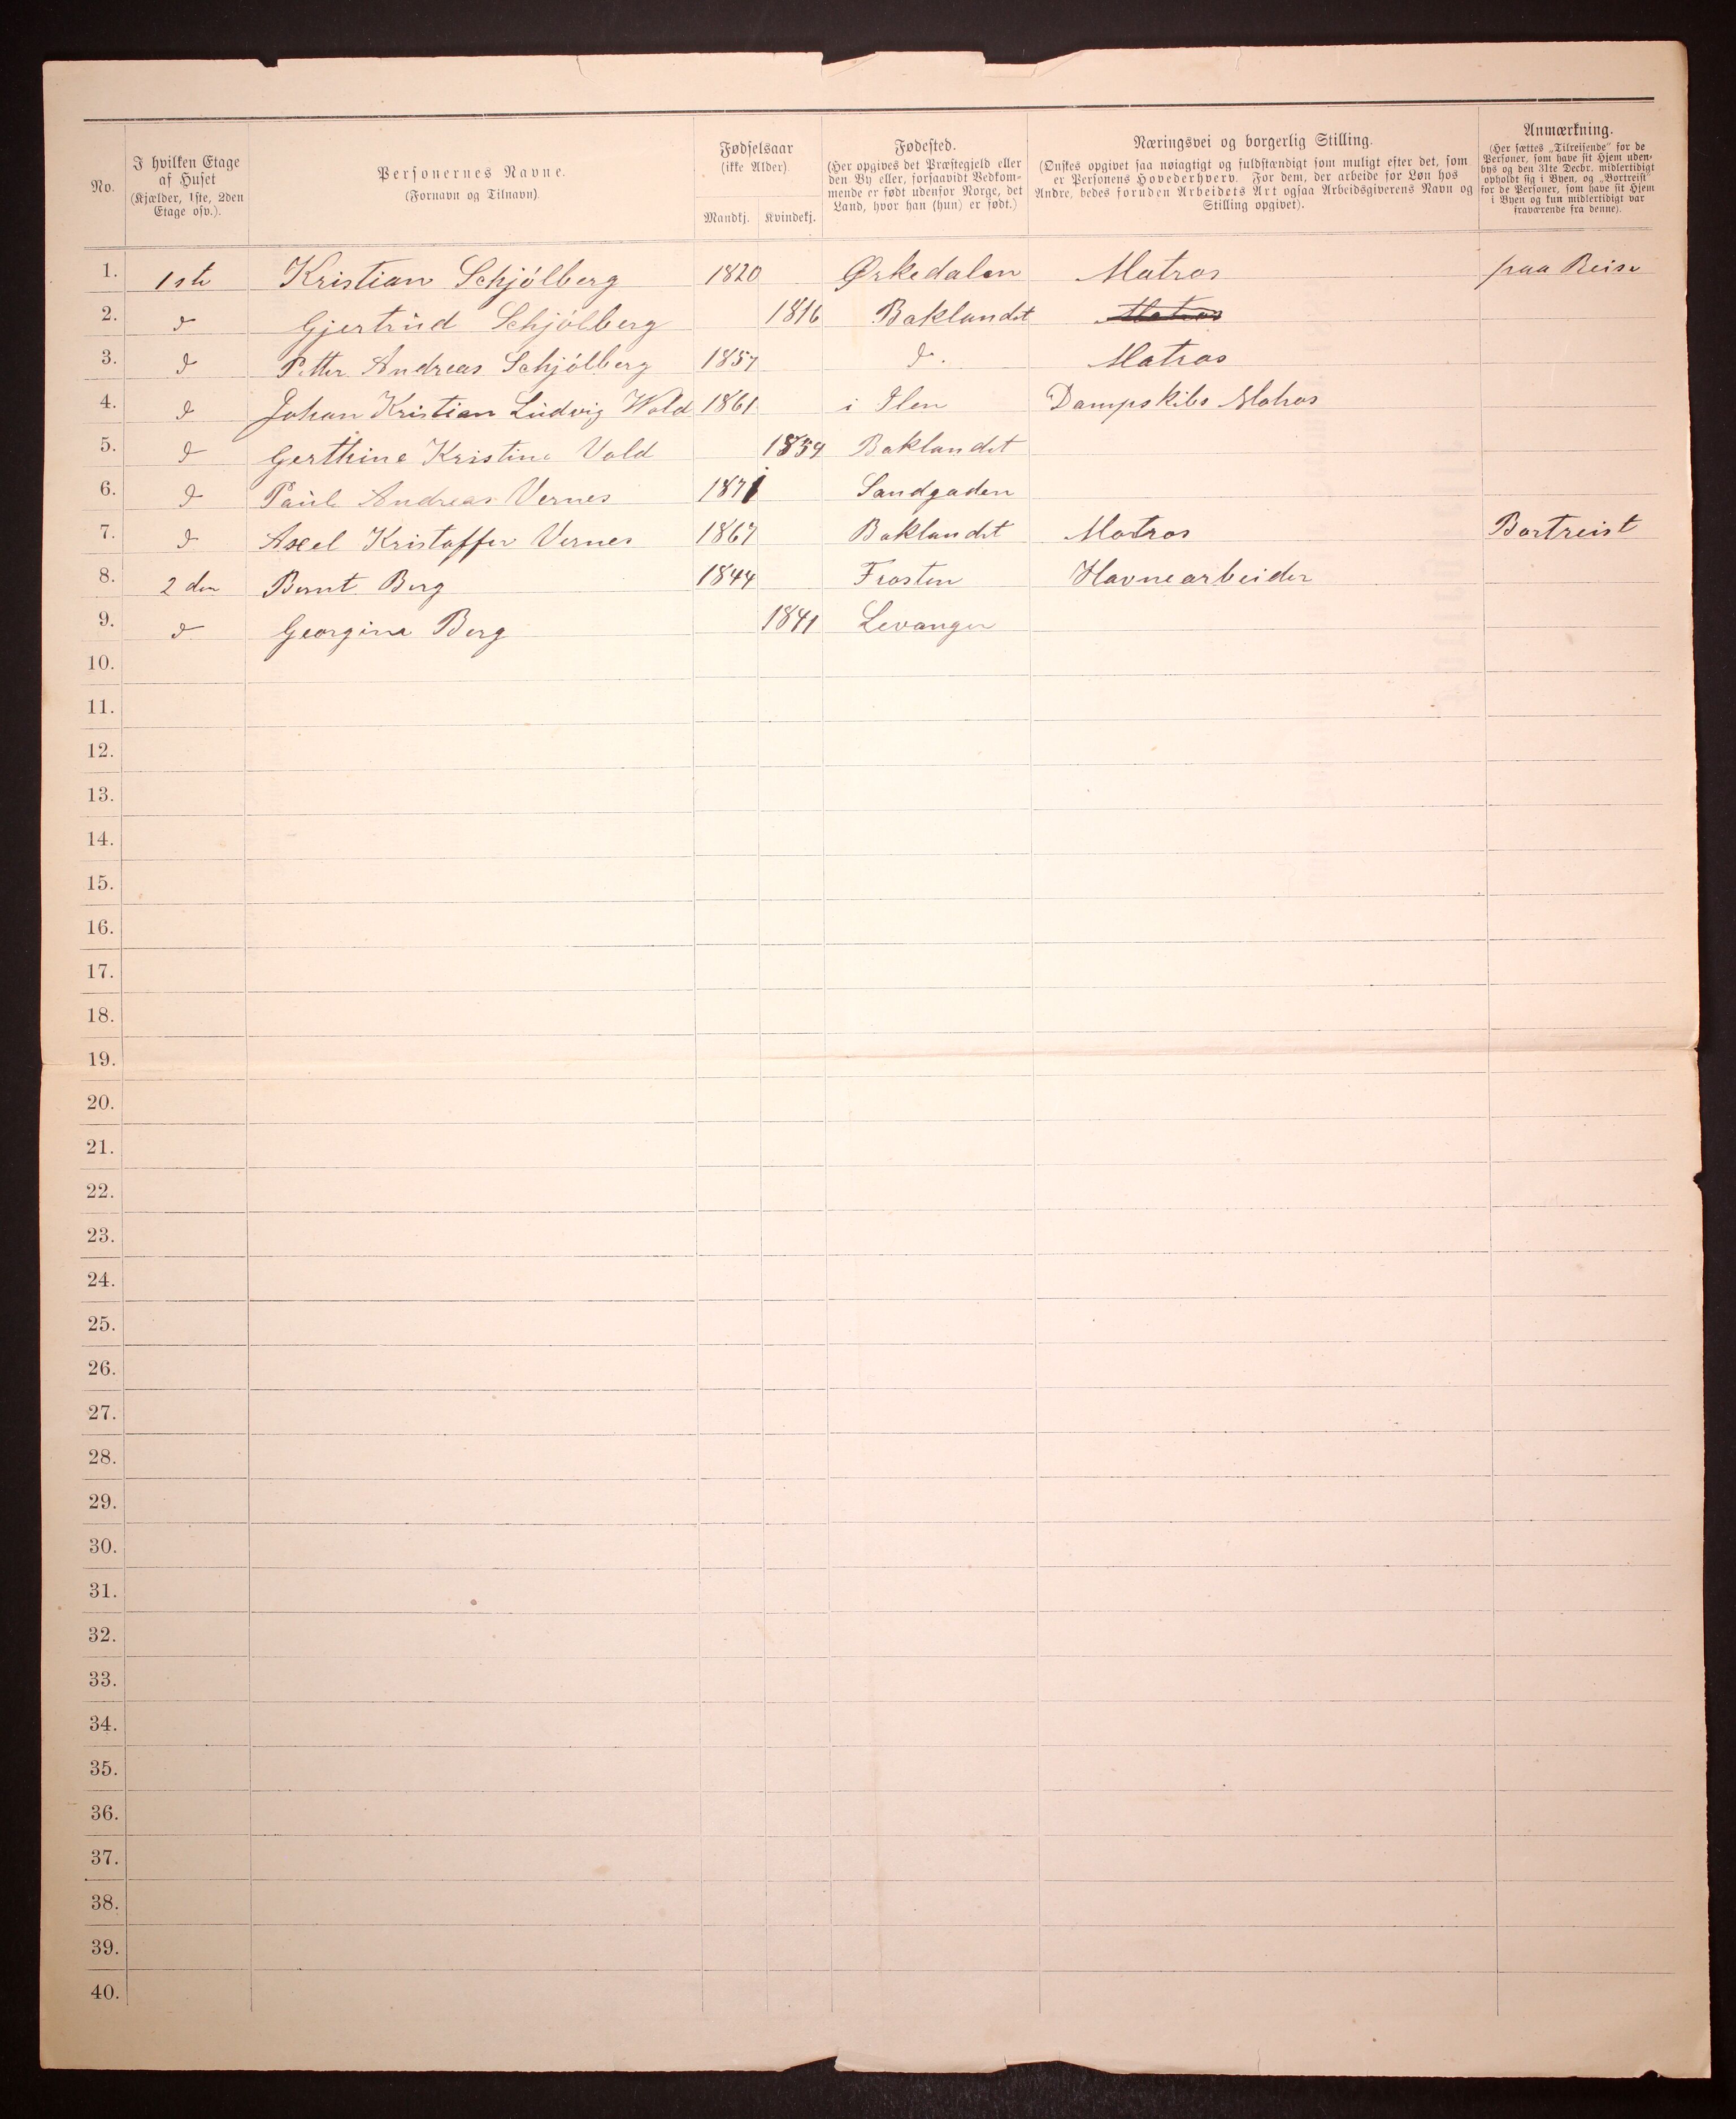 No.
I hvilken Etage
af Huset
(Kjælder, 1ste, 2den
Etage osv.).
Personernes Navne.
(Fornavn og Tilnavn).
Fødselsaar
(ikke Alder).
Mandkj. Kvindekj.
Fødested.
(Her opgives det Præstegjeld eller
den By eller, forsaavidt Vedkom-
mende er født udenfor Norge, det
Land, hvor han (hun) er født.)
Næringsvei og borgerlig Stilling.
(Ønskes opgivet saa nøiagtigt og fuldstændigt som muligt efter det, som
er Personens Hovederhverv. For dem, der arbeide for Løn hos
Andre, bedes foruden Arbeidets Art ogsaa Arbeidsgiverens Navn og
Stilling opgivet).
Anmærkning.
(Her sættes „Tilreisende" for de
Personer, som have sit Hjem uden-
bys og den 31te Decbr. midlertidigt
opholdt sig i Byen, og „Bortreist"
for de Personer, som have sit Hjem
i Byen og kun midlertidigt var
fraværende fra denne).
1. 1ste Kristian Schjólberg 1820 Ørkedalen Matros paa Reise
2. d Gjertrúd Schjólberg 1816 Baklandet Matros
3. d Petter Andreas Schjólberg 1857 d. Matros
4. d Johan Kristian Lúdvig Wold 1861 i Ilen Dampskibs Matros
5. d Gerthine Kristine Vold 1859 Baklandet
6. d Paúl Andreas Vernes 1871 Sandgaden
7. d Axel Kristoffer Vernes 1867 Baklandet Matros Bortreist
8. 2den Bernt Berg 1844 Frosten Havnearbeider
9. d Georgina Berg 1841 Levanger
10.
11.
12.
13.
14.
15.
16.
17.
18.
19.
20.
21.
22.
23.
24.
25.
26.
27.
28.
29.
30.
31.
32.
33.
34.
35.
36.
37.
38.
39.
40.